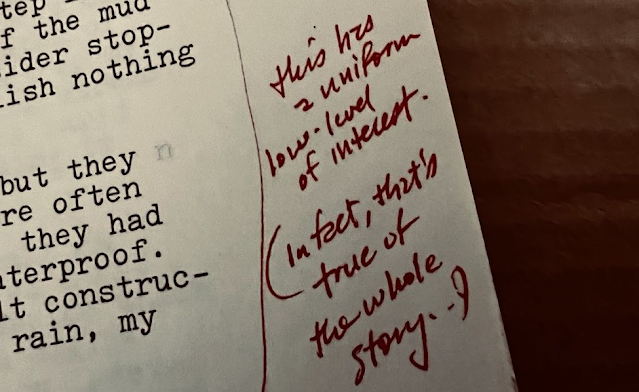 tep
f the mud
ider stop-
lish nothing
but they n
re often
they had
terproof.
lt construc-
rain, my
this has
a uniform
low-level
of interest.
(In fact, that's
true of
the whole
story..)